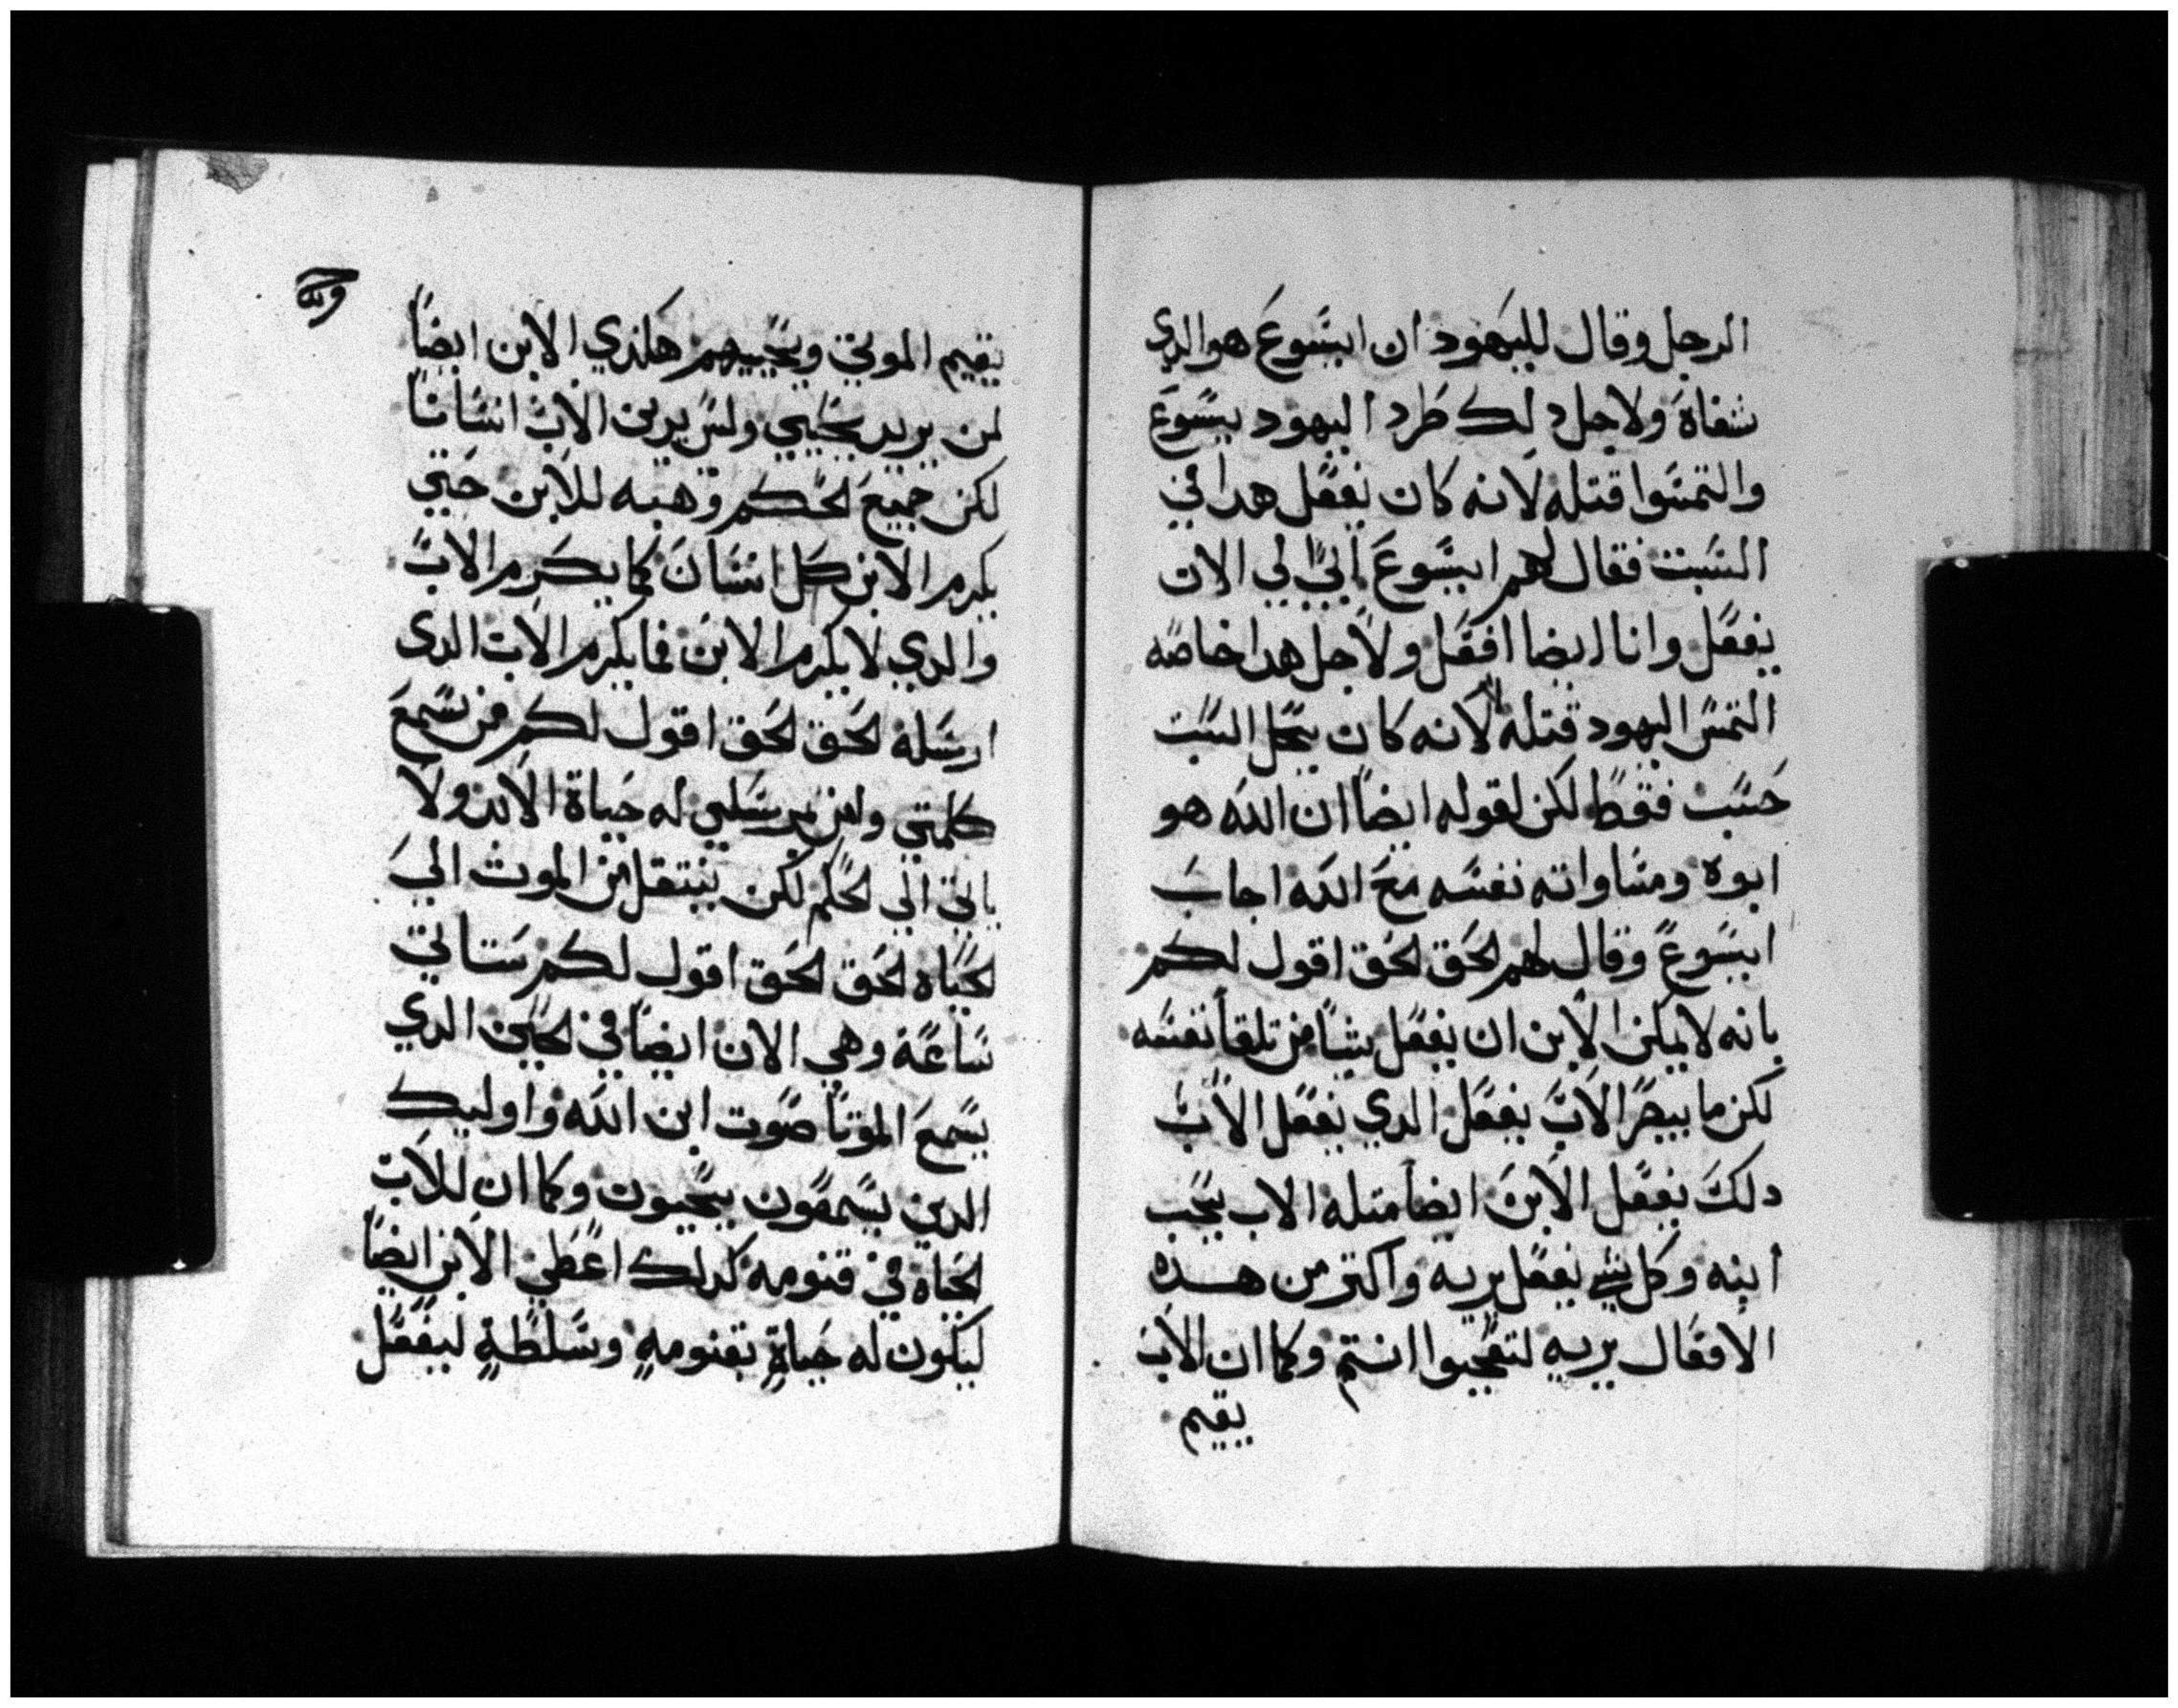 الرجل وقال لليهود ان ايسوع هو الدي
شفاة ولاجل دلك طرد اليهود يسوع
والتمسوا قتله لانه كان يفعل هدا في
السبت فقال لهم ايسوع ابي الي الان
يفعل وانا ايضا افعل ولاجل هدا خاصه
التمس اليهود قتله لا لانه كان يحل السبت
حسب فقط لكن لقوله ايضا ان الله هو
ابوه ومساواته نفسه مع الله اجاب
ايسوع وقال لهم الحق الحق اقول لكم
بانه لا يمكن الابن ان يفعل شيا من تلقا نفسه
لكن ما يبصر الاب يفعل الدي يفعل الاب
دلك يفعل الابن ايضا متله الاب يحب
ابنه وكل شي يفعل يريه واكتر من هده
الافعال يريه لتعجبوا انتم وكما ان الاب
يقيم
يقيم الموتي ويحييهم هكدي الابن ايضا
لمن يريد يحيي وليس يدين الاب انسانا
لكن جميع الحكم وهبه للابن حتي
يكرم الابن كل انسان كما يكرم الاب
والدي لا يكرم الابن فما يكرم الاب الدى
ارسله الحق الحق اقول لكم من سمع
كلمتي وامن بمرسلي له حياة الابد ولا
ياتي الي الحكم لكن ينتقل من الموت الي
الحياه الحق الحق اقول لكم ستاتي
ساعة وهي الان ايضا في الحين الدي
يسمع الموتا صوت ابن الله واوليك
الدين يسمعون يحيون وكما ان للاب
الحياه في قنومه كدلك اعطي الابن ايضا
ليكون له حياة بقنومه وسلطة ليفعل